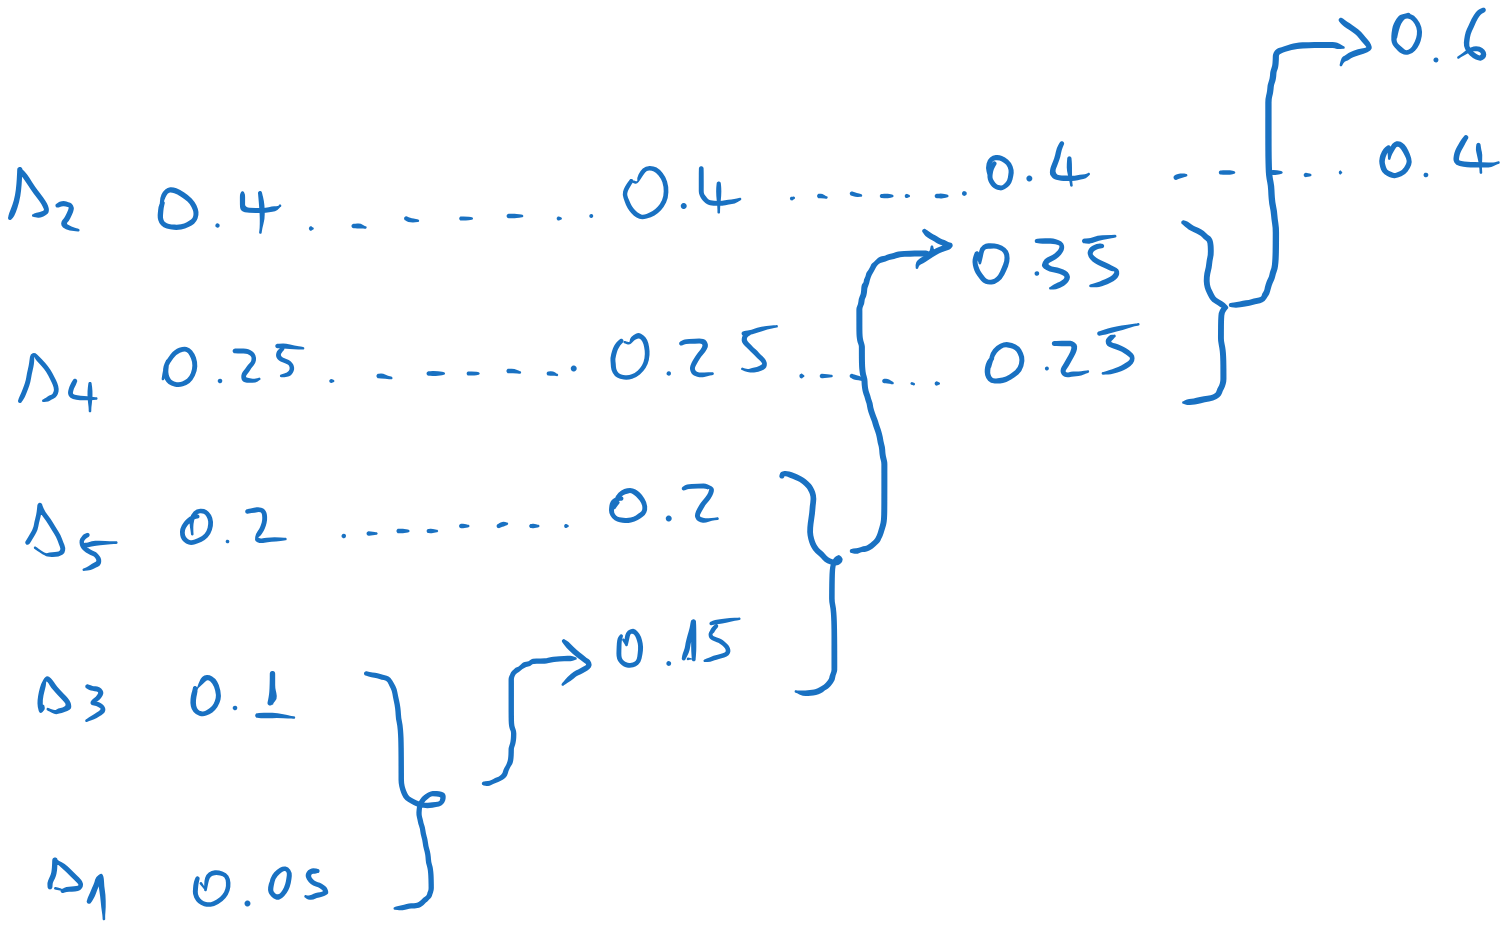 0.6
Δ2 0.4 0.4 0.4 0.4
0.35
Δ4 0.25 0.25 0.25
Δ5 0.2 0.2
0.15
Δ3 0.1
Δ1 0.05